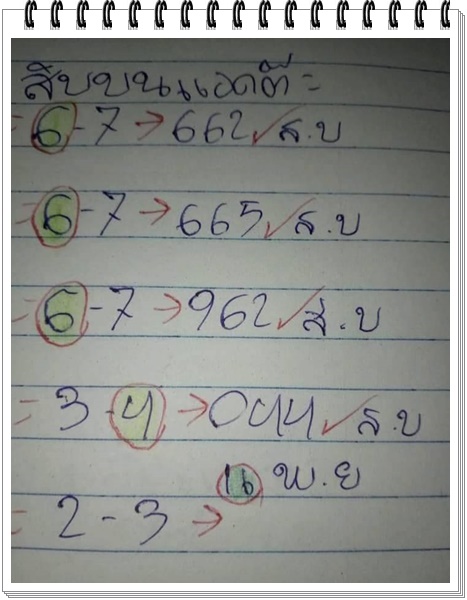 สิบบนแอดตี๋=
= 6-7 → 662 ✓ ส.บ
= 6-7 → 665 ✓ ส.บ
= 6-7 → 962 ✓ ส.บ
= 3-4 → 044 ✓ ส.บ
16 พ.ย
= 2-3 →